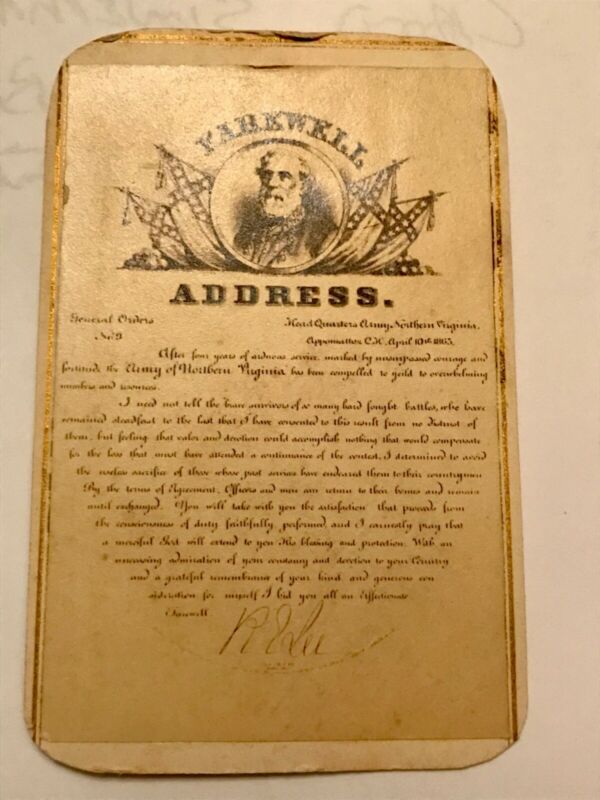 FAREWELL
ADDRESS.
General Orders
No. 9
Head Quarters Army Northern Virginia.
Appomattox C.H. April 10th 1865.
After four years of arduous service, marked by unsurpassed courage and
fortitude, the Army of Northern Virginia has been compelled to yield to overwhelming
numbers and resources.
I need not tell the brave survivors of so many hard fought battles, who have
remained steadfast to the last that I have consented to this result from no distrust of
them, but feeling that valor and devotion could accomplish nothing that would compensate
for the loss that must have attended a continuance of the contest, I determined to avoid
the useless sacrifice of those whose past services have endeared them to their countrymen
By the terms of Agreement, Officers and men can return to their homes and remain
until exchanged. You will take with you the satisfaction that proceeds from
the consciousness of duty faithfully performed, and I earnestly pray that
a merciful God will extend to you His blessing and protection. With an
unceasing admiration of your constancy and devotion to your Country
and a grateful remembrance of your kind and generous con
sideration for myself I bid you all an Affectionate
Farewell
R E Lee